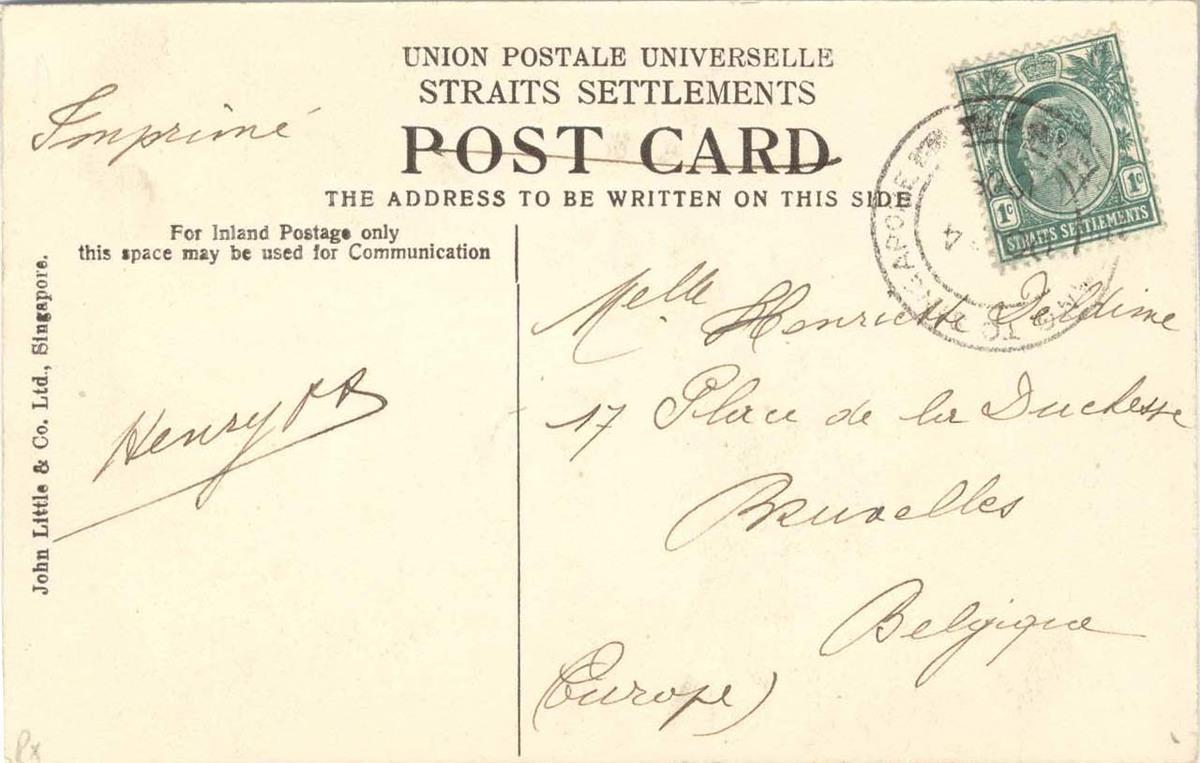 UNION POSTALE UNIVERSELLE
STRAITS SETTLEMENTS
POST CARD
THE ADDRESS TO BE WRITTEN ON THIS SIDE
Imprimé
For Inland Postage only
this space may be used for Communication
John Little & Co. Ltd., Singapore.
Henry
1c 1c
STRAITS SETTLEMENTS
SINGAPORE
4
Melle Henriette
17 Place de la Duchesse
Bruxelles
Belgique
(Europe)